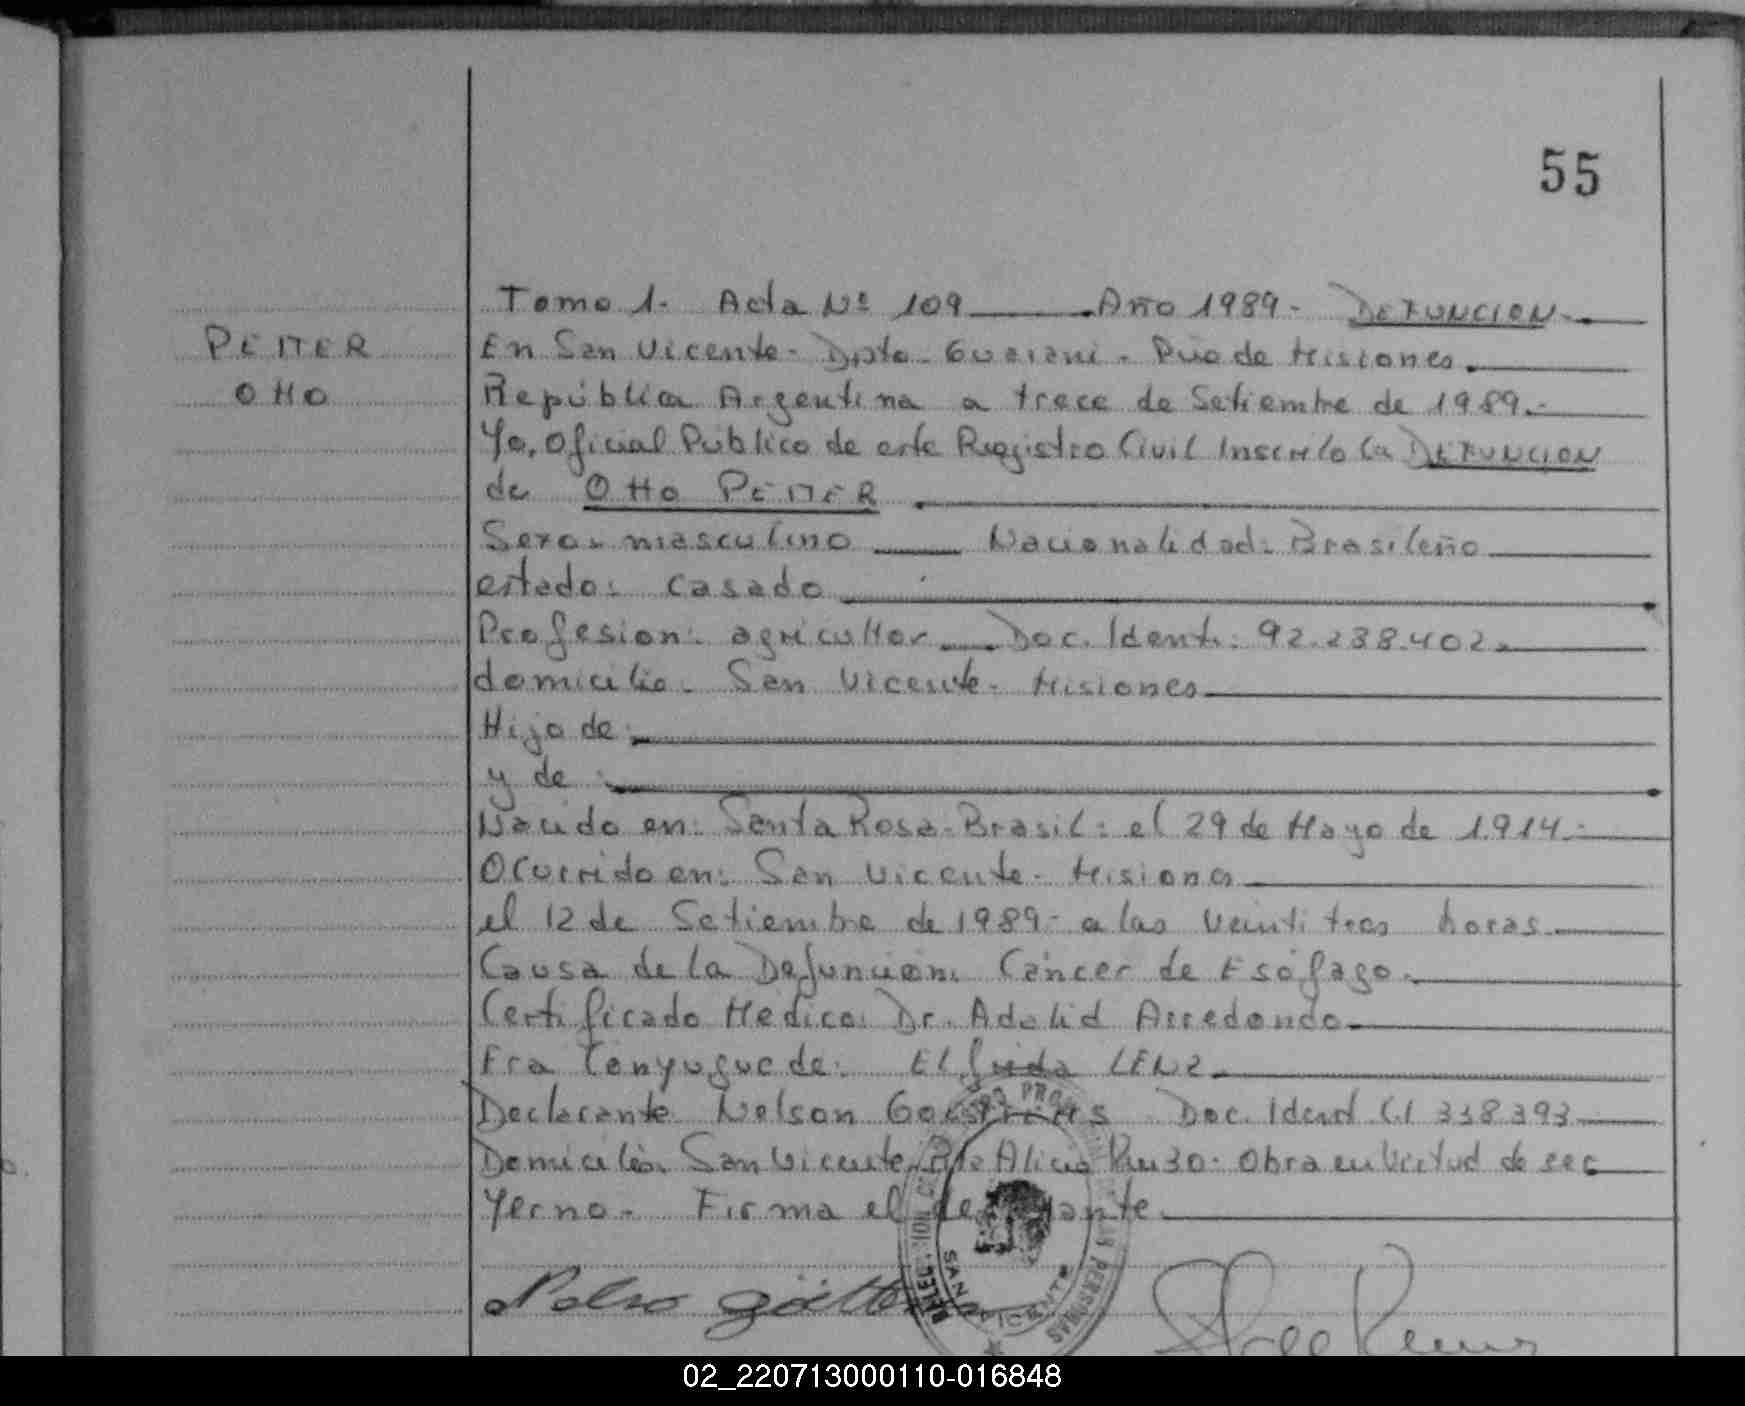 55
Tomo 1. Acta Nº 109 Año 1989. DEFUNCION.
PETTER
OTTO
En San Vicente. Dpto. Guarani. Pvia de Misiones.
República Argentina a trece de Setiembre de 1989.-
Yo, Oficial Público de este Registro Civil Inscribo la DEFUNCION
de OTTO PETTER.
Sexo. masculino Nacionalidad: Brasileño
estado: casado
Profesion: agricultor Doc. Ident: 92.238.402.
domicilio. San Vicente. Misiones
Hijo de:
y de:
Nacido en: Santa Rosa. Brasil: el 29 de Mayo de 1914.-
Ocurrido en: San Vicente. Misiones
el 12 de Setiembre de 1989.- a las veintitres horas.
Causa de la Defuncion: Cáncer de Esófago.
Certificado Medico: Dr. Adalid Arredondo.
Era Conyugue de: Elfrida LENZ.
Declarante. Nelson Doc. Ident. C.I 338393
Domicilio. San Vicente. Pte Alicia Obra en Virtud de ser
Yerno. Firma el declarante.
SAN VICENTE
02_220713000110-016848